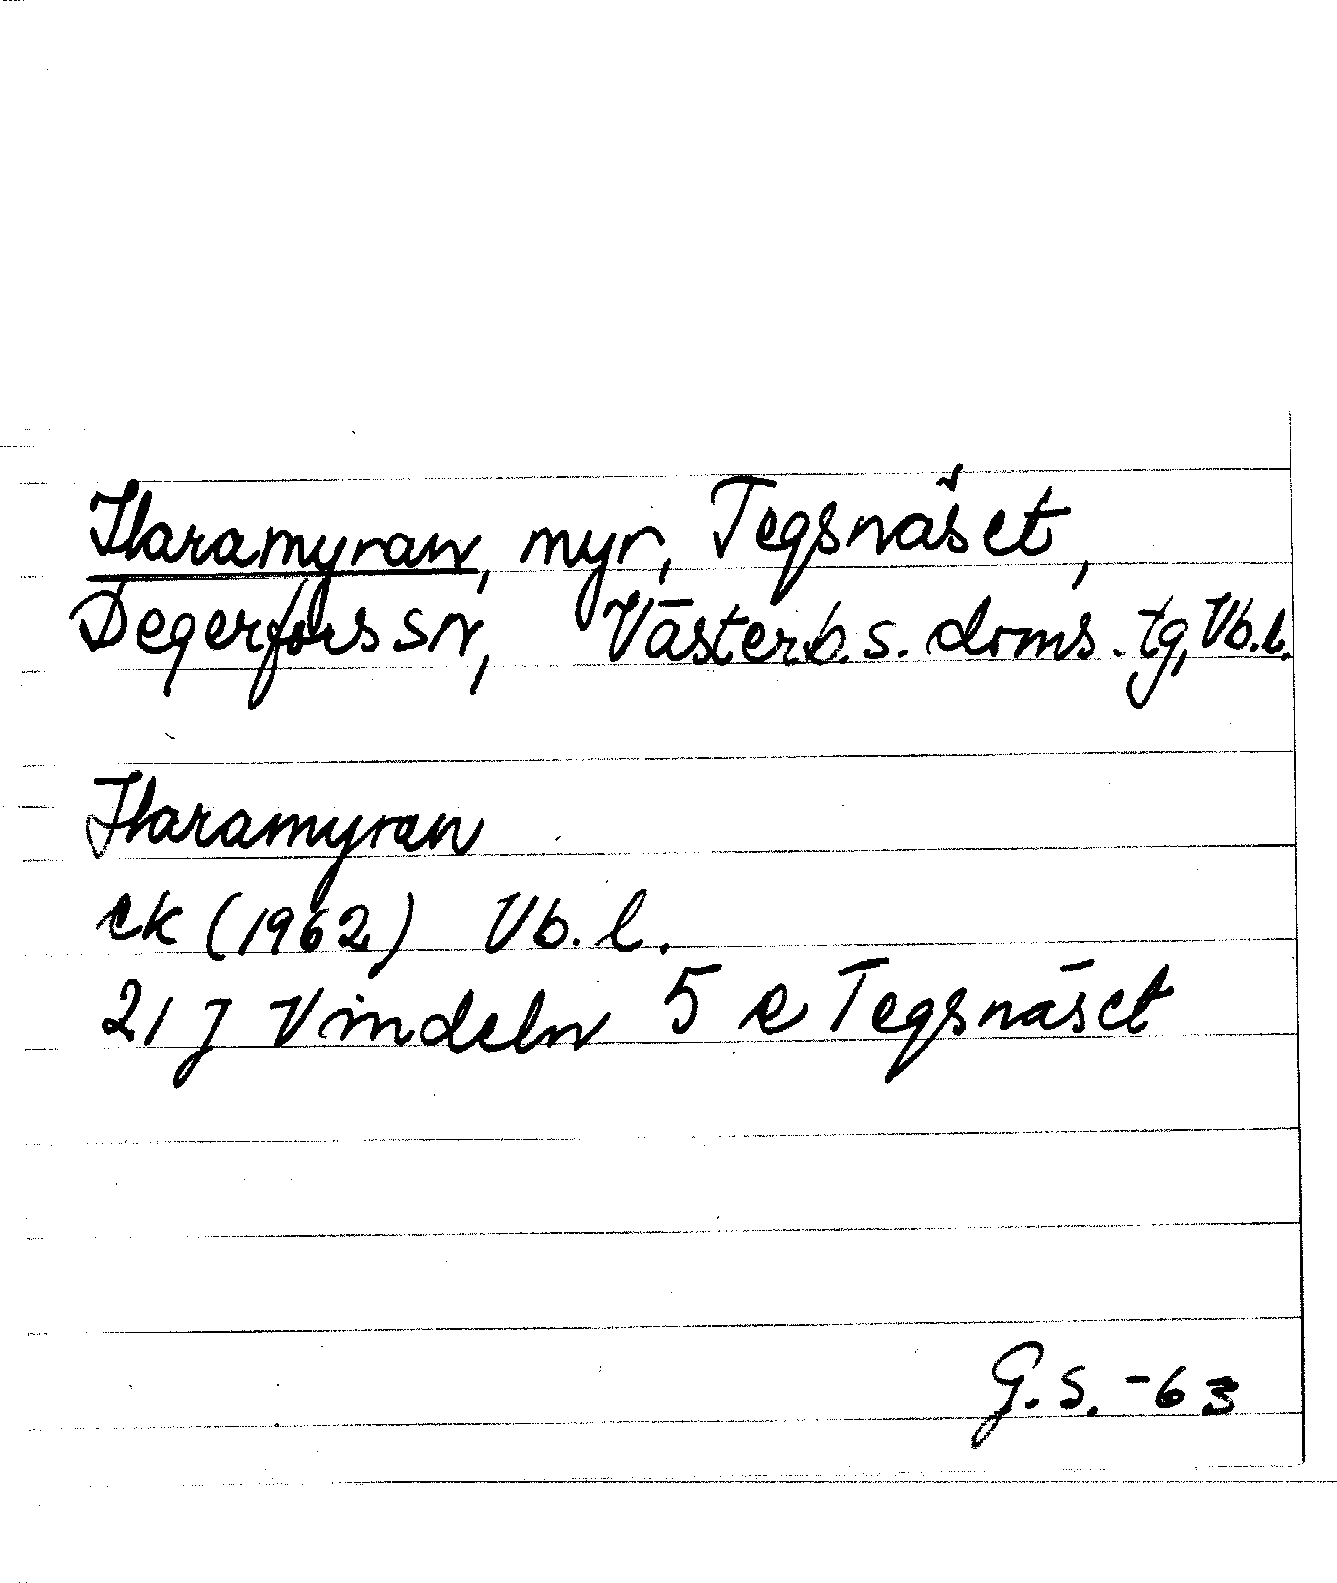 Haramyran, myr, Tegsnäset,
Degerfors sn, Västerb. s. doms. tg, Vb. l.
Haramyran
ek (1962) Vb. l.
21 J Vindeln 5 e Tegsnäset
G. S. -63